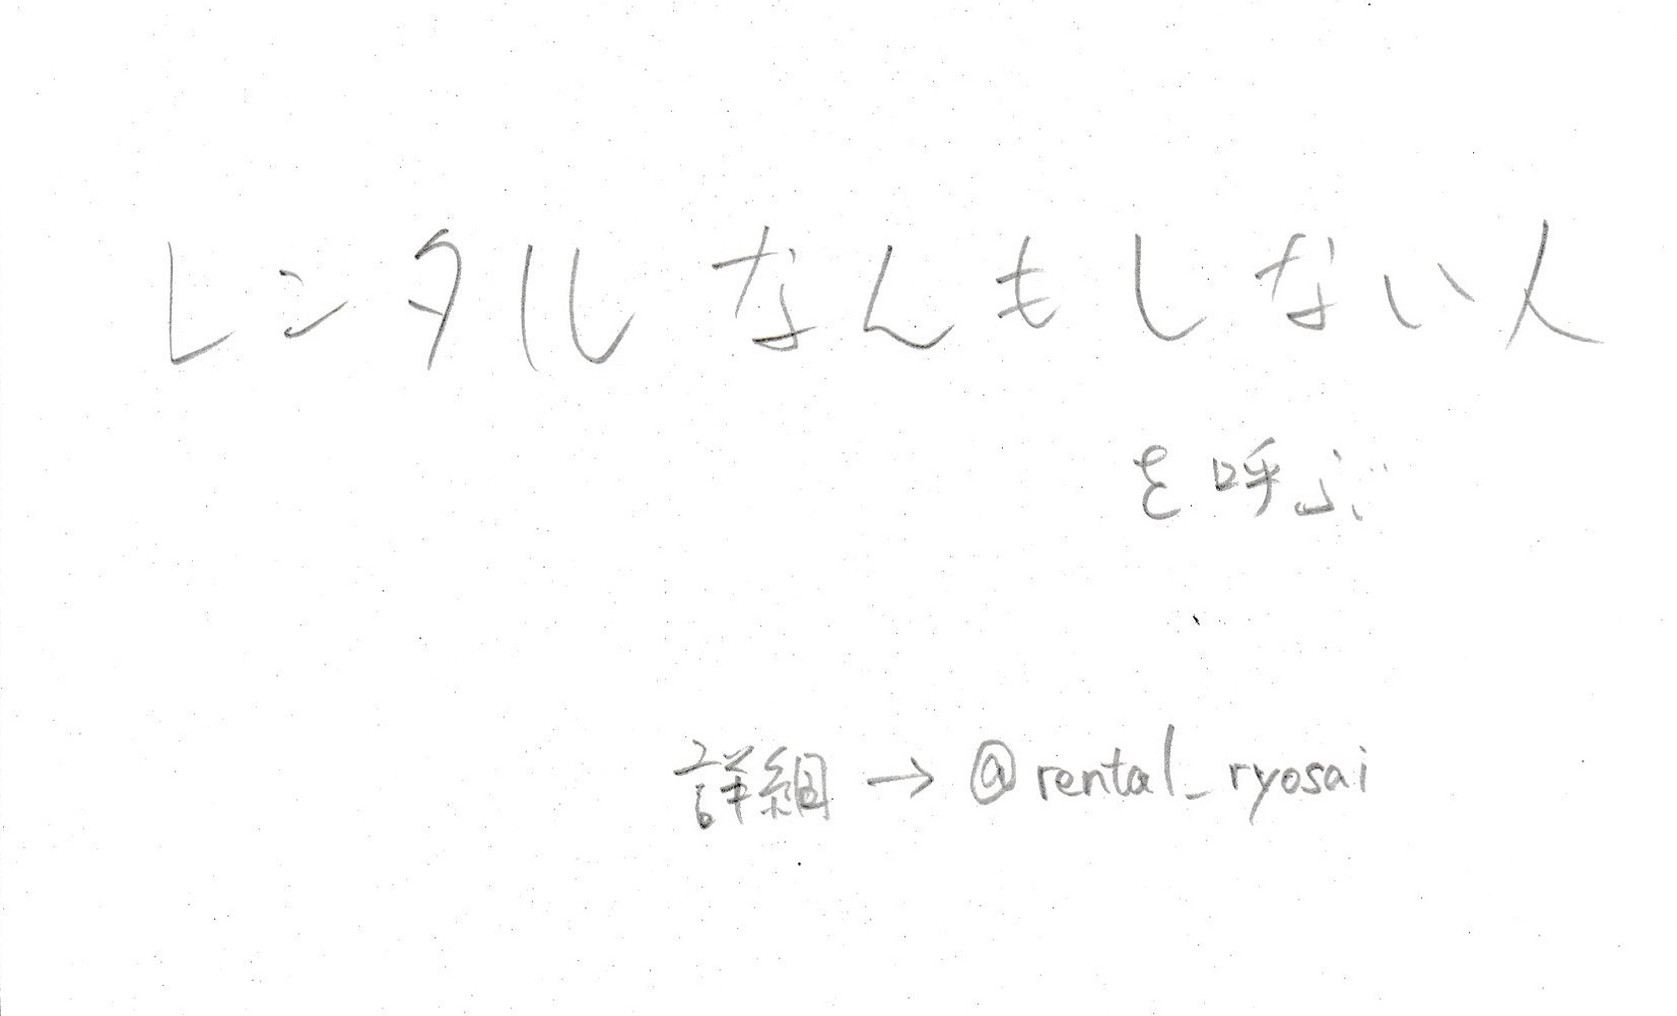 レンタルなんもしない人
を呼ぶ
詳細→@rental_ryosai